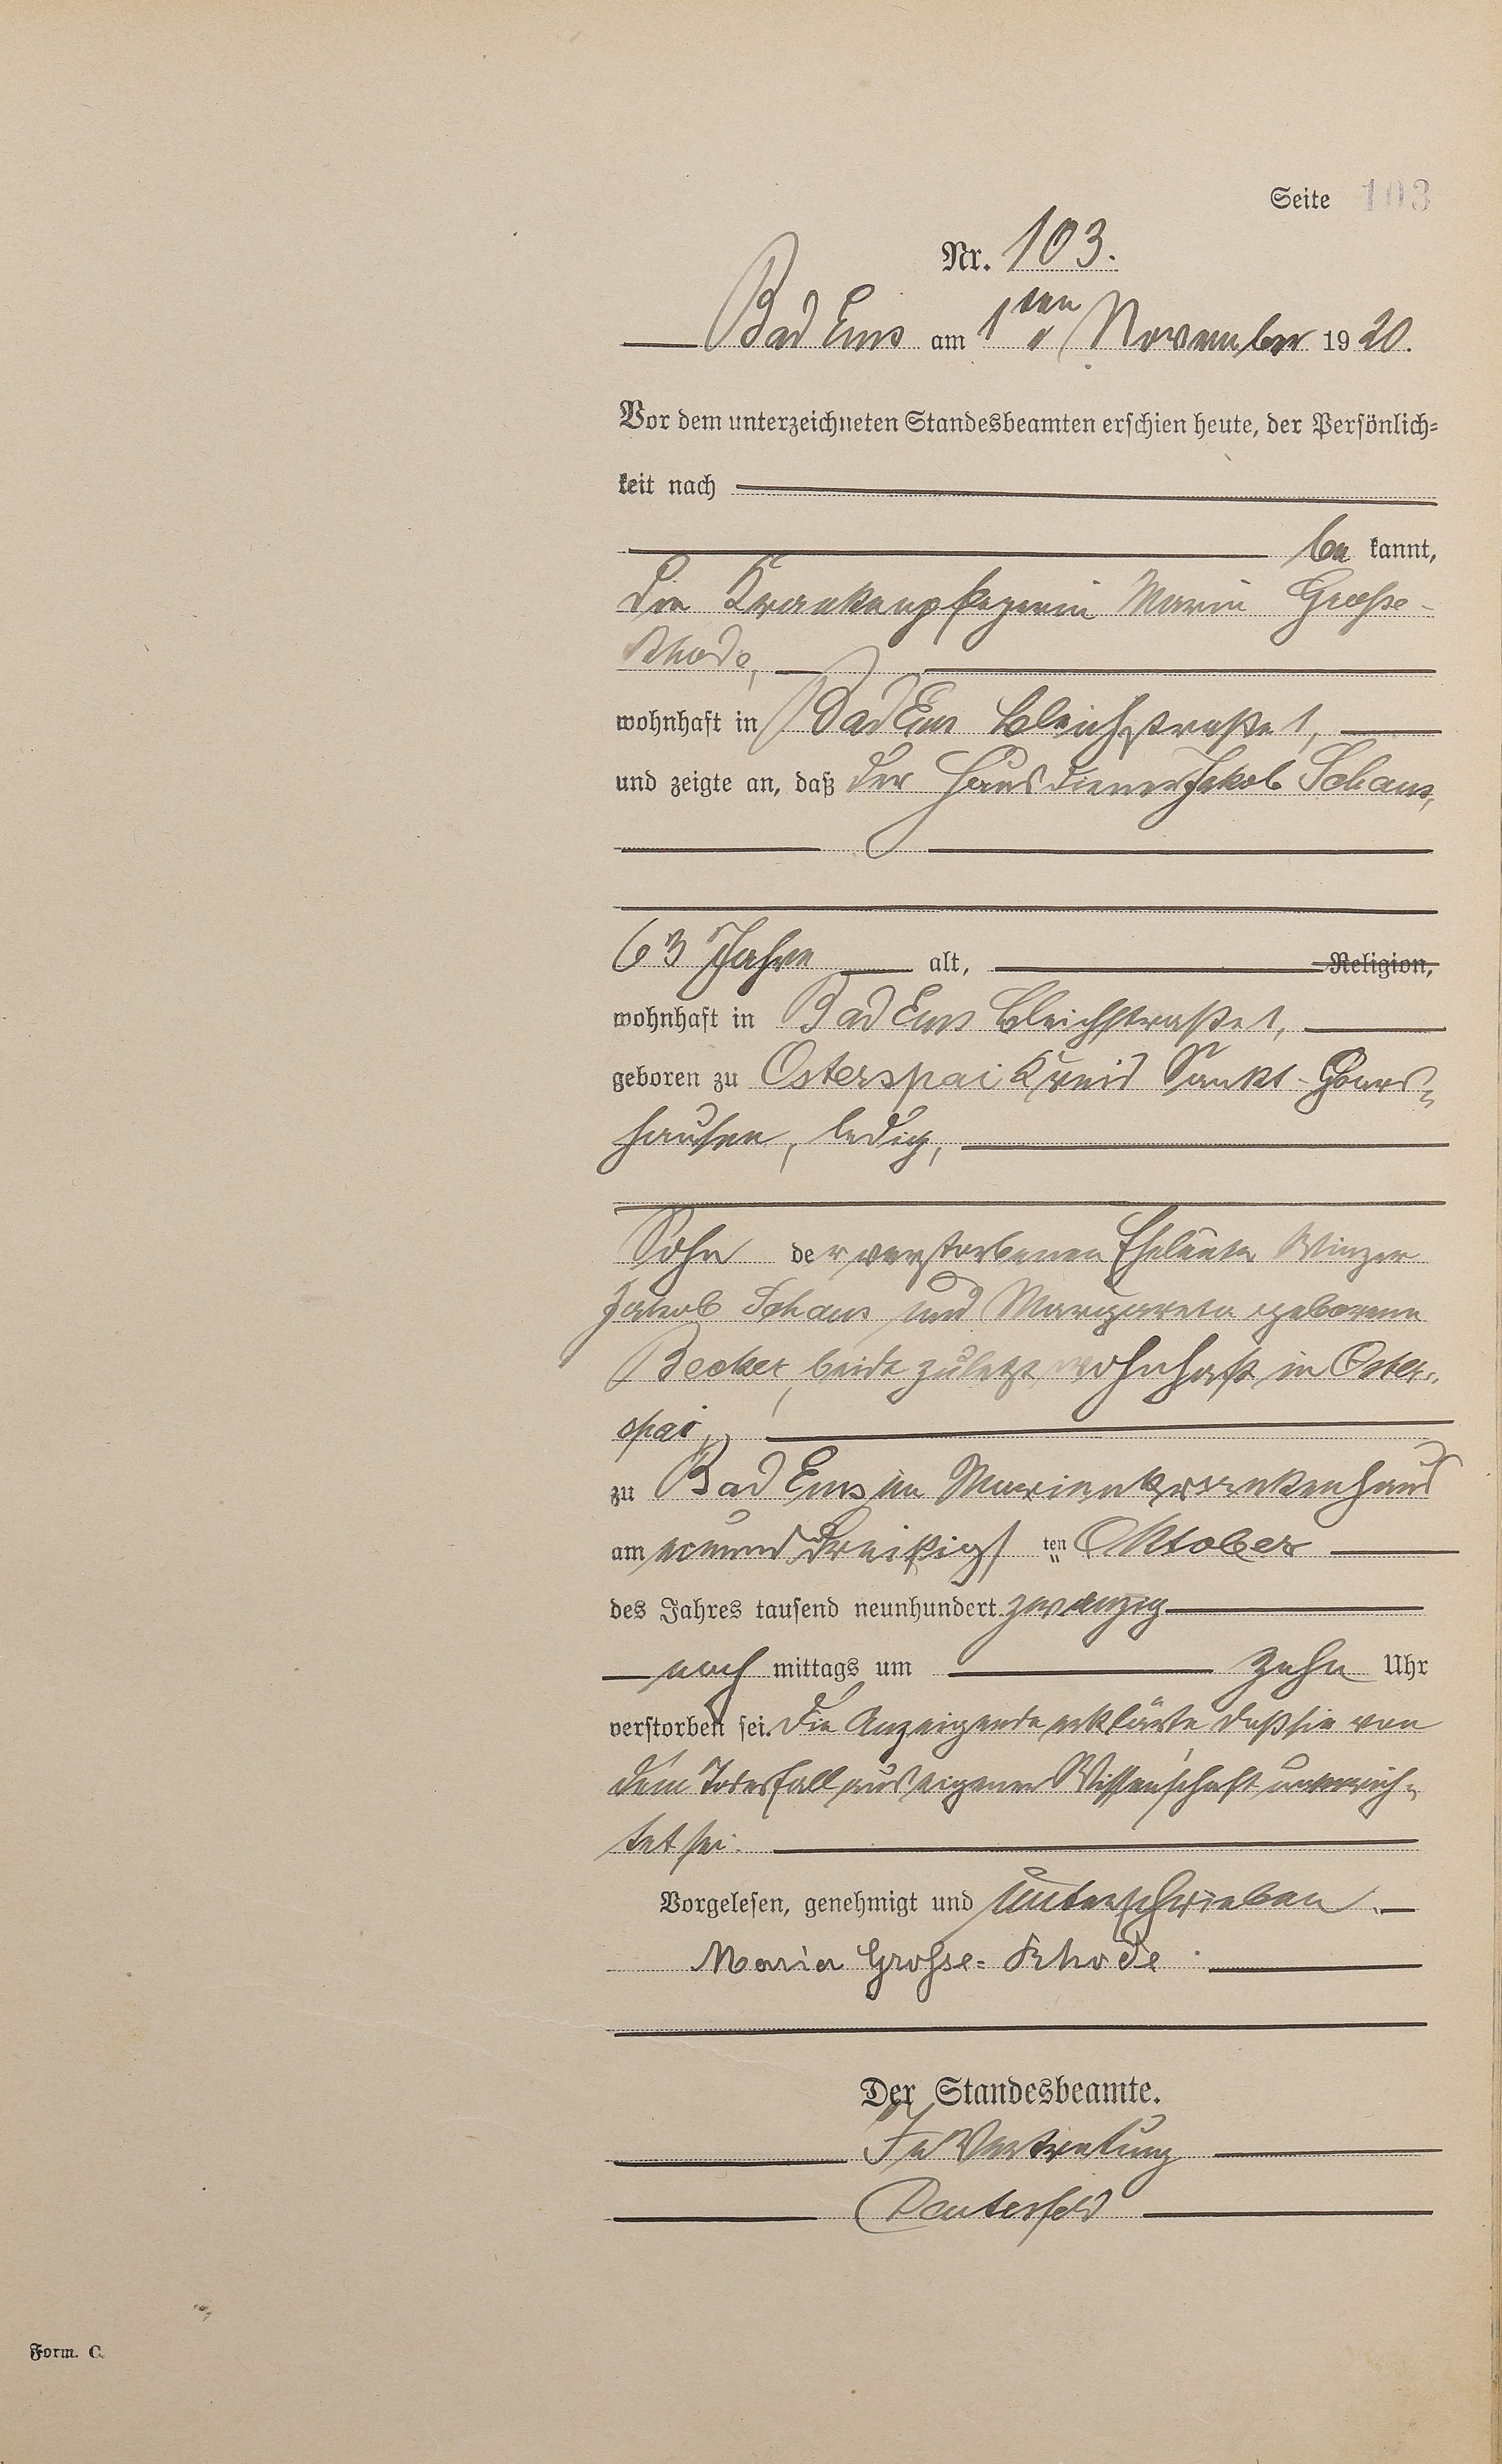 Seite 103
Nr. 103.
Bad Ems am 1ten November 1920.
Vor dem unterzeichneten Standesbeamten erschien heute, der Persönlich-
keit nach
be kannt,
die Krankenpflegerin Maria Große-
Rhode,
wohnhaft in Bad Ems Bleichstraße 1,
und zeigte an, daß der Hausdiener Jakob Schaus,
63 Jahre alt, Religion,
wohnhaft in Bad Ems Bleichstraße 1,
geboren zu Osterspai Kreis Sankt-Goars-
hausen, ledig,
Sohn der verstorbenen Eheleute Winzer
Jakob Schaus und Margareta geborene
Becker, beide zuletzt wohnhaft in Oster-
spai,
zu Bad Ems im Marienkrankenhaus
am einund dreißigsten Oktober
des Jahres tausend neunhundert zwanzig
nach mittags um zehn Uhr
verstorben sei. Die Anzeigende erklärte daß sie von
dem Todesfall aus eigener Wissenschaft unterrich-
tet sei.
Vorgelesen, genehmigt und unterschrieben.
Maria Grosse-Rhode
Der Standesbeamte.
In Vertretung
Form. C.